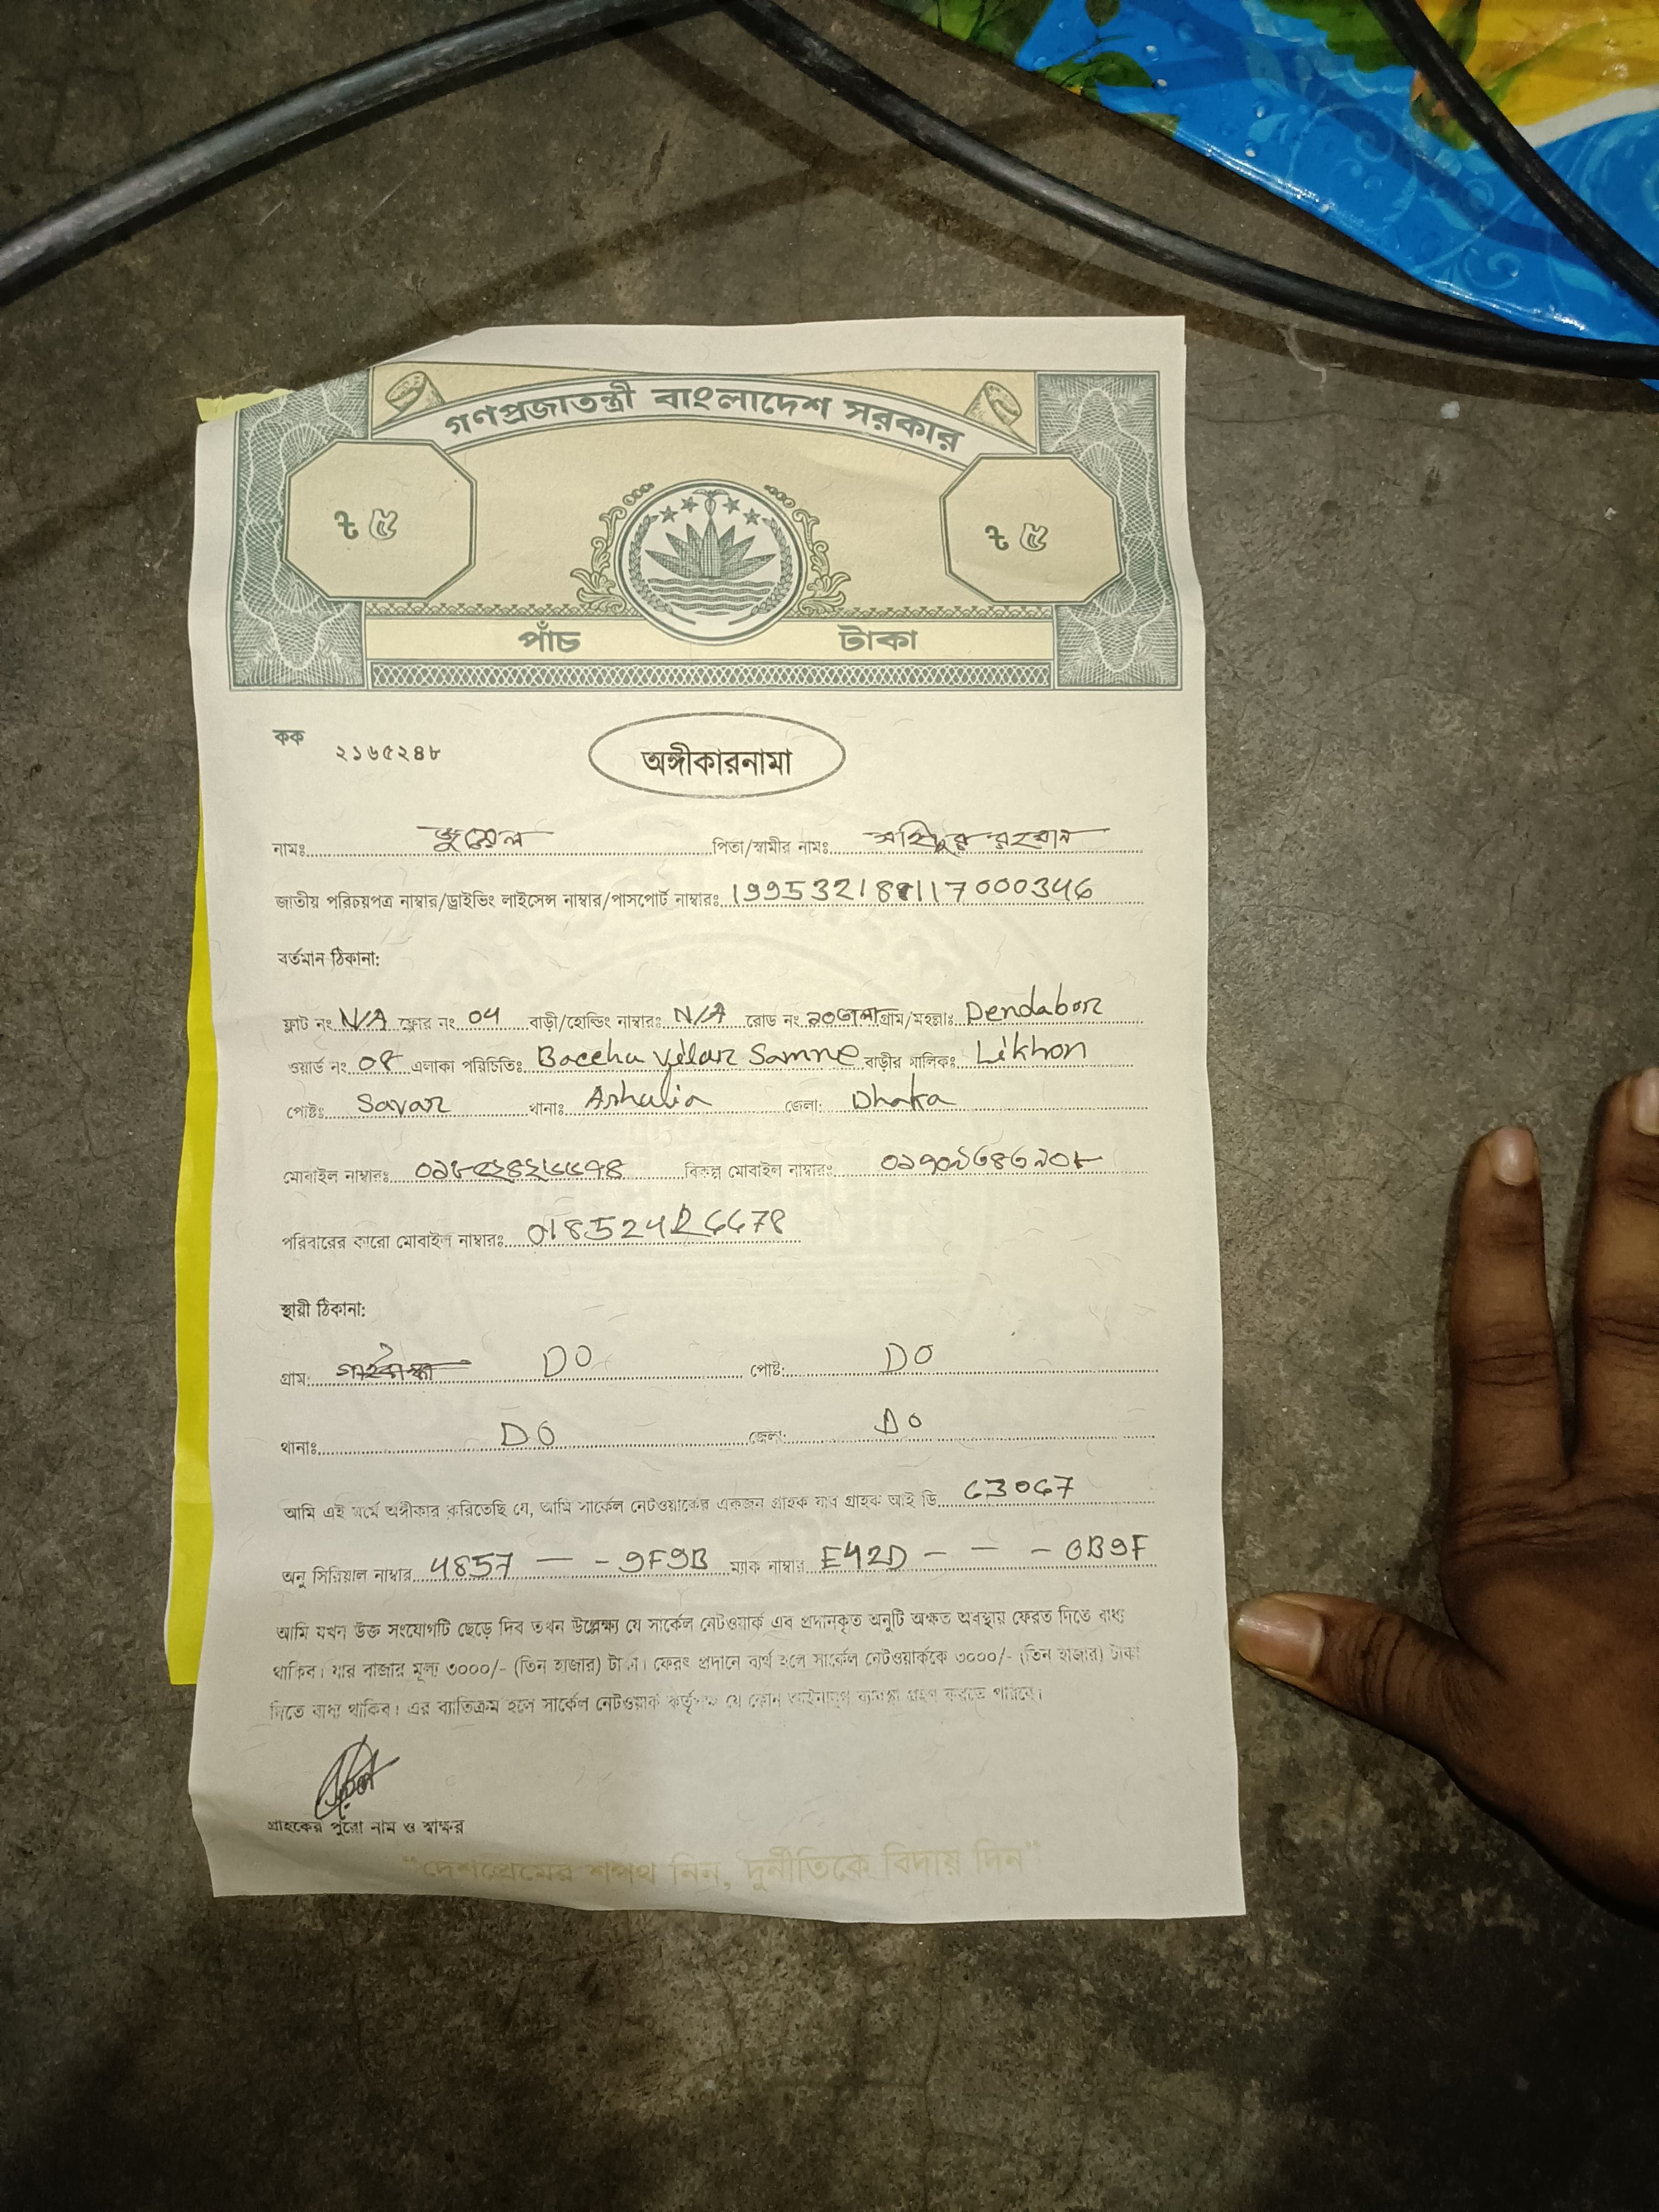 গণপ্রজাতন্ত্রী বাংলাদেশ সরকার
৳ ৫ ৳ ৫
পাঁচ টাকা
কক ২১৬৫২৪৮
অঙ্গীকারনামা
নামঃ জুয়েল পিতা/স্বামীর নামঃ রহমান
জাতীয় পরিচয়পত্র নাম্বার/ড্রাইভিং লাইসেন্স নাম্বার/পাসপোর্ট নাম্বারঃ 19953218817000346
বর্তমান ঠিকানা:
ফ্লাট নং N/A ফ্লোর নং 04 বাড়ী/হোল্ডিং নাম্বারঃ N/A রোড নং গ্রাম/মহল্লাঃ Dendabor
ওয়ার্ড নং 08 এলাকা পরিচিতিঃ Samne বাড়ীর মালিকঃ Likhon
পোষ্টঃ Savar থানাঃ Ashulia জেলা: Dhaka
মোবাইল নাম্বারঃ বিকল্প মোবাইল নাম্বারঃ
পরিবারের কারো মোবাইল নাম্বারঃ
স্থায়ী ঠিকানা:
গ্রাম: DO পোষ্ট: DO
থানাঃ DO জেলা: DO
আমি এই মর্মে অঙ্গীকার করিতেছি যে, আমি সার্কেল নেটওয়ার্কের একজন গ্রাহক যার গ্রাহক আই ডি 63067
অনু সিরিয়াল নাম্বার 4857 — - 9F9B ম্যাক নাম্বার E42D - - - 0B9F
আমি যখন উক্ত সংযোগটি ছেড়ে দিব তখন উল্লেক্ষ্য যে সার্কেল নেটওয়ার্ক এর প্রদানকৃত অনুটি অক্ষত অবস্থায় ফেরত দিতে বাধ্য
থাকিব। যার বাজার মূল্য ৩০০০/- (তিন হাজার) টাকা। ফেরৎ প্রদানে ব্যর্থ হলে সার্কেল নেটওয়ার্ককে ৩০০০/- (তিন হাজার) টাকা
দিতে বাধ্য থাকিব। এর ব্যতিক্রম হলে সার্কেল নেটওয়ার্ক কর্তৃপক্ষ যে কোন আইনানুগ ব্যবস্থা গ্রহণ করতে পারিবে।
গ্রাহকের পুরো নাম ও স্বাক্ষর
"দেশপ্রেমের শপথ নিন, দুর্নীতিকে বিদায় দিন"